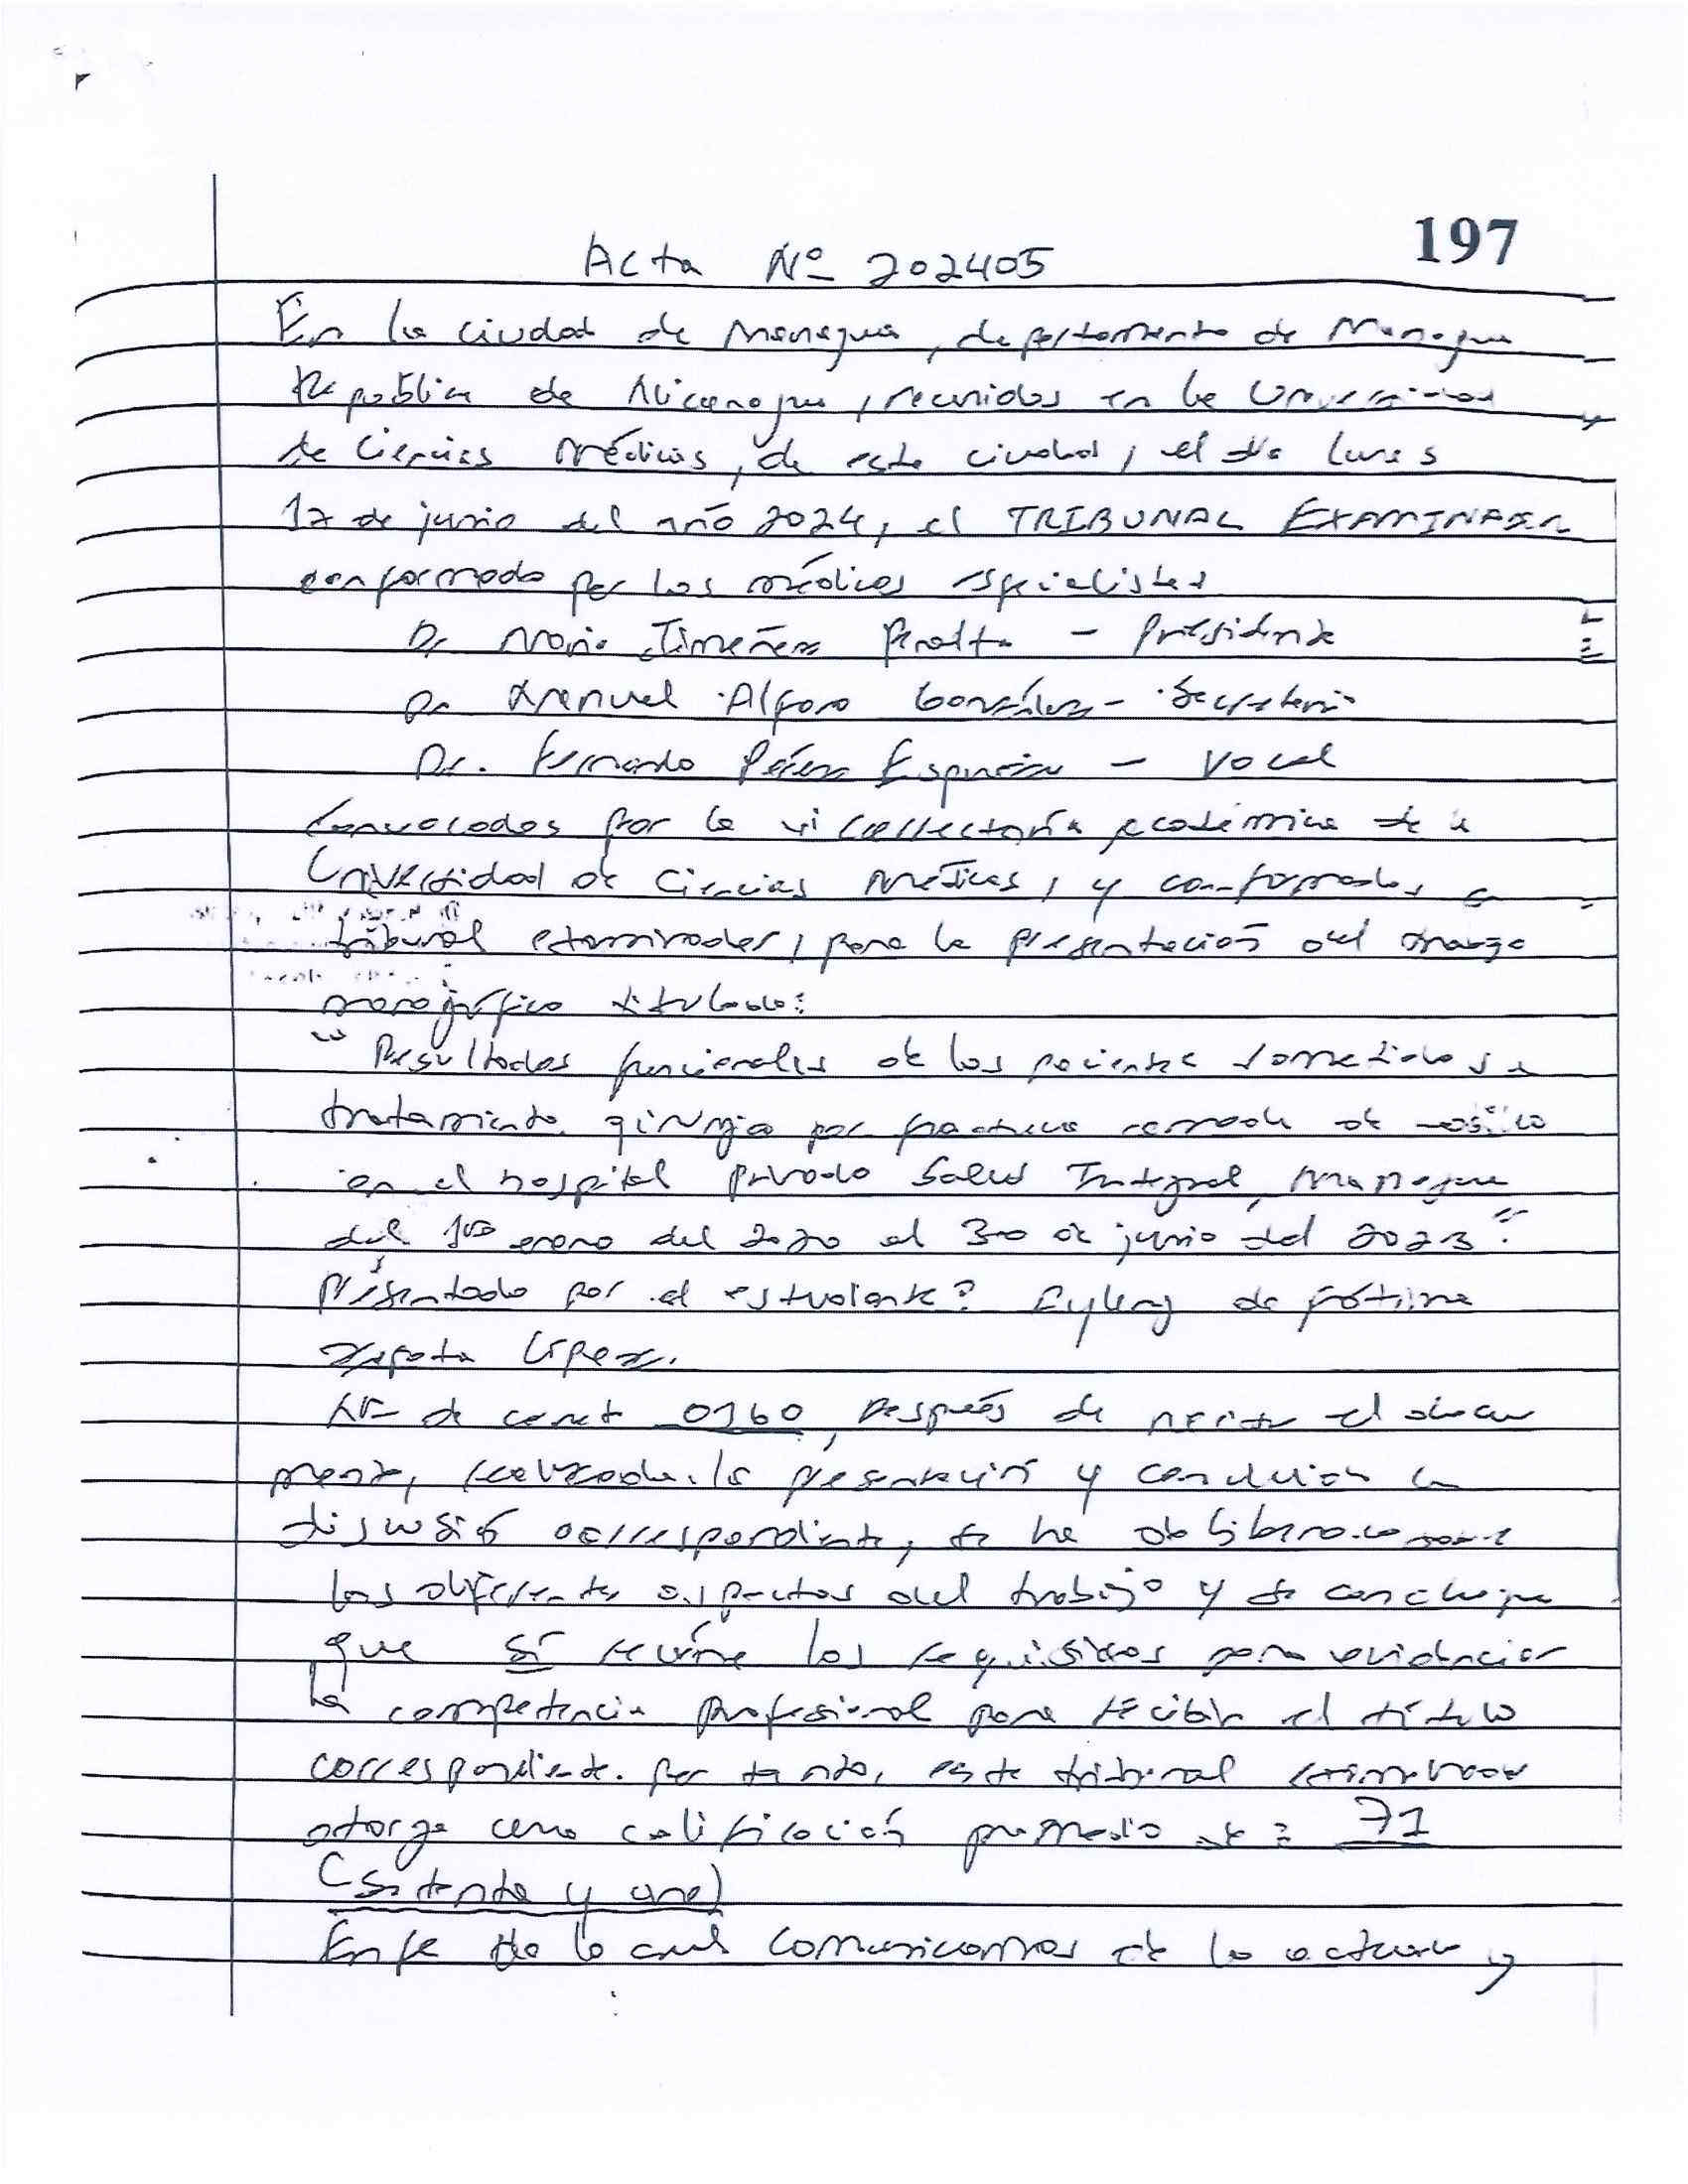 197
Acta Nº 202405
En la ciudad de Managua, departamento de Managua
República de Nicaragua, reunidos en la Universidad
de Ciencias Médicas, de esta ciudad, el día lunes
17 de junio del año 2024, el TRIBUNAL EXAMINADOR
conformado por los médicos especialistas
Dr Mario Jiménez Peralta - Presidente
Dr Manuel Alfaro González - Secretario
Dr. Fernando Pérez Espinoza - Vocal
Convocados por la vicerrectoría académica de la
Universidad de Ciencias Médicas, y conformados
tribunal examinador, para la presentación del
monográfico titulado:
"Resultados funcionales de los paciente sometidos a
tratamiento por fractura cerrada de
en el hospital privado Salud Integral, Managua
del 1ro enero del 2020 al 30 de junio del 2023".
Presentado por el estudiante: Eyling de Fátima
Zapata López.
Nº de carnet 0160, Después de el docu
mento, realizada la presentación y concluida la
discusión correspondiente, se ha deliberado sobre
los diferentes aspectos del trabajo y se concluye
que sí reúne los requisitos para evidenciar
la competencia profesional para recibir el título
correspondiente. Por tanto, este tribunal examinador
otorga una calificación promedio de: 71
(Setenta y uno)
En fe de lo cual comunicamos de lo actuado y